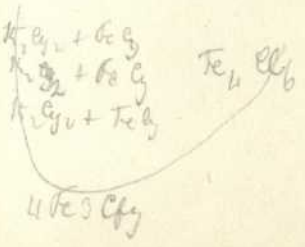 K₂ Cy₂ + Fe Cy
K₂ Cy₂ + Fe Cy
K₂ Cy₂ + Fe Cy
Fe₄ Cl₆
4 Fe 3 Cfy